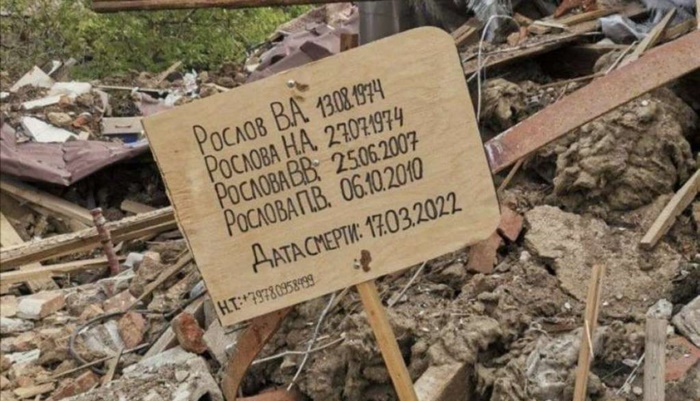 РОСЛОВ В.А. 13.08.1974
РОСЛОВА Н.А. 27.07.1974
РОСЛОВА В.В. 25.06.2007
РОСЛОВА П.В. 06.10.2010
ДАТА СМЕРТИ: 17.03.2022
Н.Т.: +79780958499